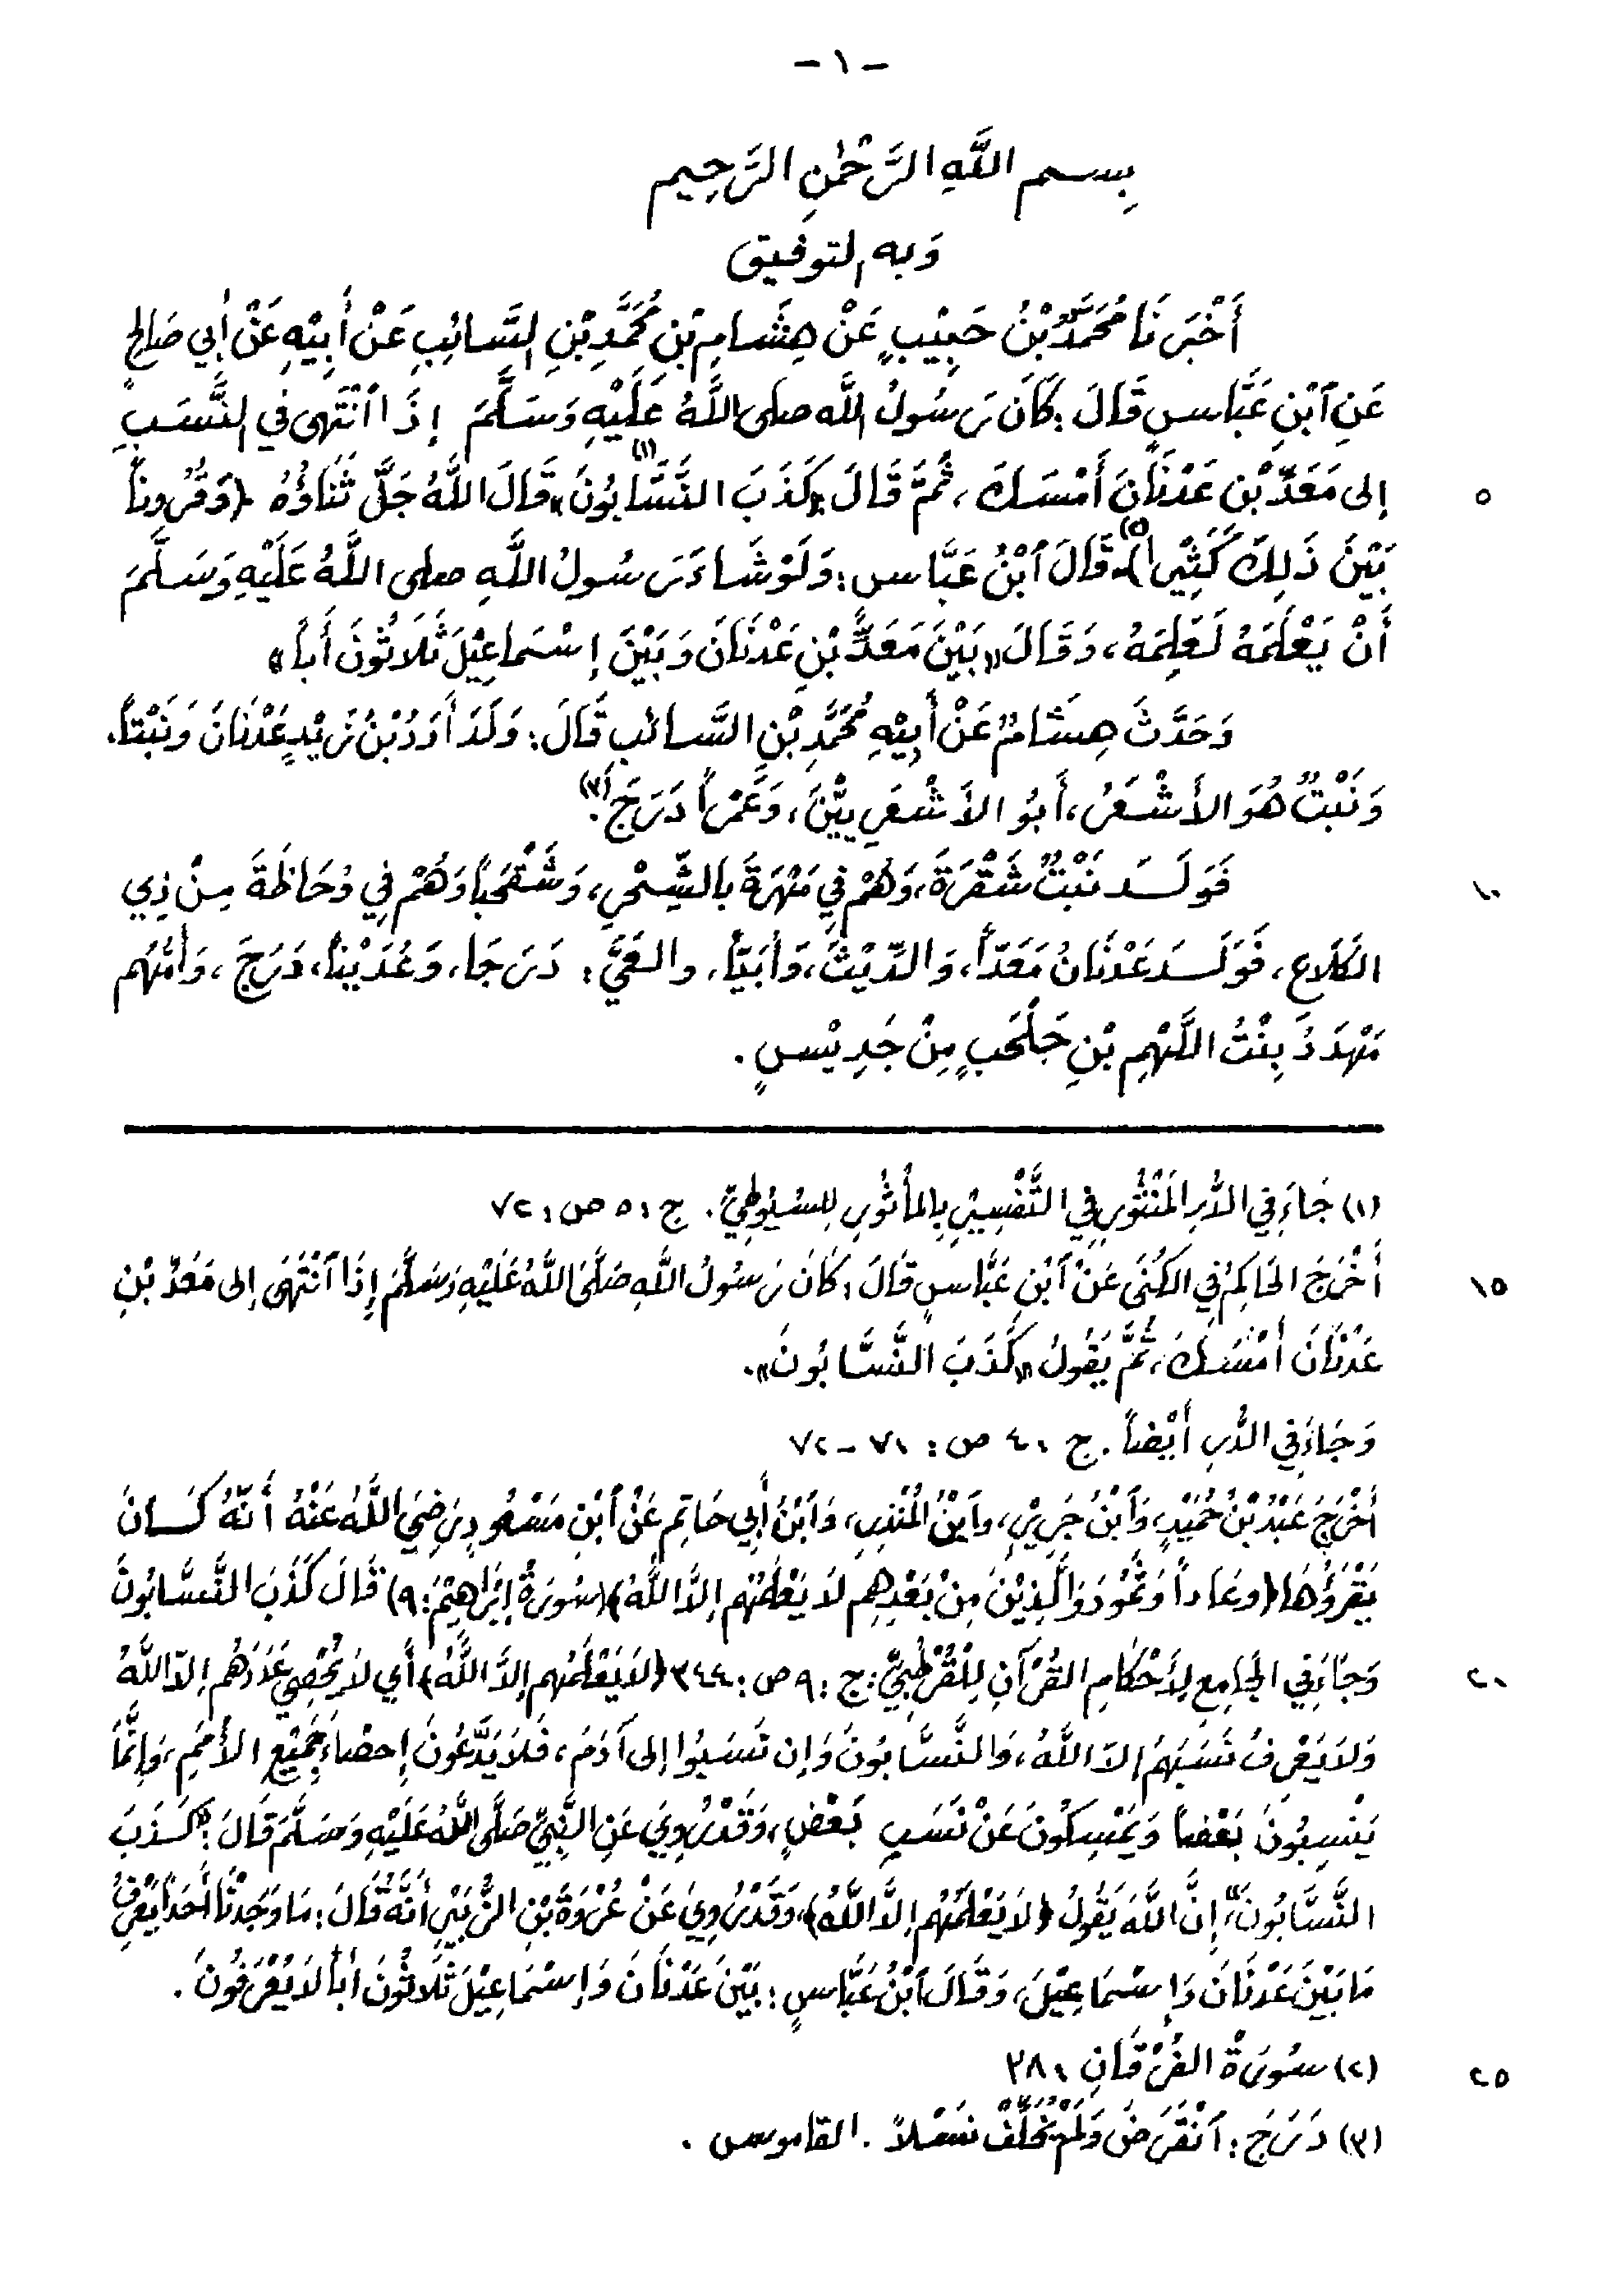 - ١ -
بِسم اللَّهِ الرَّحْمٰنِ الرَّحِيم
وَبه التوفيق
أَخْبَرَنَا مُحَمَّدُ بْنُ حَبِيْبٍ عَنْ هِشَامِ بْنِ مُحَمَّدِ بْنِ السَّائِبِ عَنْ أَبِيْهِ عَنْ أَبِي صَالِحٍ
عَنِ ٱبْنِ عَبَّاسٍ قَالَ: كَانَ رَسُولُ اللَّه صلى اللَّهُ عَلَيْهِ وَسَلَّمَ إِذَا ٱنْتَهى في النَّسَبِ
٥ إلى مَعَدِّ بْنِ عَدْنَانَ أَمْسَكَ، ثُمَّ قَالَ «كَذَبَ النَّسَّابُونَ»(١) قَالَ اللَّهُ جَلَّ ثَنَاؤُهُ ﴿وَقُرُوناً
بَيْنَ ذَلِكَ كَثِيْراً﴾(٢) قَالَ ٱبْنُ عَبَّاسٍ: وَلَوْ شَاءَ رَسُولُ اللَّهِ صلى اللَّهُ عَلَيْهِ وَسَلَّمَ
أَنْ يَعْلَمَهُ لَعَلِمَهُ، وَقَالَ «بَيْنَ مَعَدِّ بْنِ عَدْنَانَ وَبَيْنَ إِسْمَاعِيْلَ ثَلَاثُوْنَ أَباً»
وَحَدَّثَ هِشَامٌ عَنْ أَبِيْهِ مُحَمَّدِ بْنِ السَّائب قَالَ: وَلَدَ أُدَدُ بْنُ زَيْدٍ عَدْنَانَ وَنَبْتاً،
وَنَبْتٌ هُوَ الأَشْعَرُ، أَبُو الأَشْعَرِيِّيْنَ، وَعَمْراً دَرَجَ(٣).
١٠ فَوَلَـدَ نَبْتٌ شَقْرَةَ، وَهُمْ فِي مَهْرَةَ بِالشِّحْرِ، وَشَقْحَباً وَهُمْ فِي وُحَاظَةَ مِنْ ذِي
الكَلَاعِ، فَوَلَـدَ عَدْنَانُ مَعَدّاً، وَالدِّيْثَ، وَأُبَيّاً، والعَيَّ: دَرَجَا، وَعُدَيْناً، دَرَجَ، وَأُمُّهُم
مَهْدَدُ بِنْتُ اللَّهْمِ بْنِ جَلْحَبٍ مِنْ جَدِيْسٍ.
(١) جَاءَ فِي الدُّرِ المَنْثُوْرِ فِي التَّفْسِيْرِ بِالمأْثُوْرِ لِلسُيُوطِيِّ. ج: ٥ ص: ٧٢
١٥ أَخْرَجَ الحَاكِمُ فِي الكُنَى عَنْ ٱبْنِ عَبَّاسٍ قَالَ: كَانَ رَسُولُ اللَّهِ صَلَّى اللَّهُ عَلَيْهِ وَسَلَّمَ إِذَا ٱنْتَهَى إلى مَعَدِّ بْنِ
عَدْنَانَ أَمْسَكَ، ثُمَّ يَقُولُ «كَذَبَ النَّسَّابُونَ».
وَجَاءَ فِي الدُّرِ أَيْضاً. ج: ٤ ص: ٧١ - ٧٢
أَخْرَجَ عَبْدُ بْنُ حُمَيْدٍ، وَٱبْنُ جَرِيْرٍ، وٱبْنُ المُنْذِرِ، وَٱبْنُ أَبِي حَاتِمٍ عَنْ ٱبْنِ مَسْعُودٍ رَضِيَ اللَّهُ عَنْهُ أَنَّهُ كَـانَ
يَقْرَؤُهَا ﴿وعَاداً وَثَمُودَ وَالَّذِيْنَ مِنْ بَعْدِهِم لَا يَعْلَمُهُم إلَّا اللَّهُ﴾ (سُورَةُ إِبْرَاهِيْمَ: ٩) قَالَ كَذَبَ النَّسَّابُونَ
٢٠ وَجَاءَ فِي الجَامِعِ لِأَحْكَامِ القُرْآنِ لِلْقُرْطُبِيِّ: ج: ٩ ص: ٣٤٤ ﴿لَا يَعْلَمُهُم إلَّا اللَّهُ﴾ أَي لَا يُحْصِي عَدَدَهُم إلّا اللَّهُ
وَلَا يَعْرِفُ نَسَبَهُمْ إلَّا اللَّهُ، وَالنَّسَّابُونَ وَإِن نَسَبُوا إلى آدَمَ، فَلَا يَدَّعُونَ إِحصَاءَ جَمِيْعِ الأُمَمِ، وَإِنَّمَا
يَنْسِبُونَ بَعْضاً وَيُمْسِكُونَ عَنْ نَسَبِ بَعْضٍ، وَقَدْ رُوِيَ عَنِ النَّبِيِّ صَلَّى اللَّهُ عَلَيْهِ وَسَلَّمَ قَالَ: «كَـذَبَ
النَّسَّابُونَ» إِنَّ اللَّهَ يَقُولُ ﴿لَا يَعْلَمُهُم إلَّا اللَّهُ﴾، وَقَدْ رُوِيَ عَنْ عُرْوَةَ بْنِ الزُّبَيْرِ أَنَّهُ قَالَ: مَا وَجَدْنَا أَحَداً يَعْرِفُ
مَا بَيْنَ عَدْنَانَ وَإِسْمَاعِيْلَ، وَقَالَ ٱبْنُ عَبَّاسٍ: بَيْنَ عَدْنَانَ وَإِسْمَاعِيْلَ ثَلَاثُونَ أَباً لَا يُعْرَفُونَ.
٢٥ (٢) سُورَةُ الفُرْقَانِ: ٣٨
(٣) دَرَجَ: ٱنْقَرَضَ وَلَمْ يُخَلِّفْ نَسْلاً. القاموس.